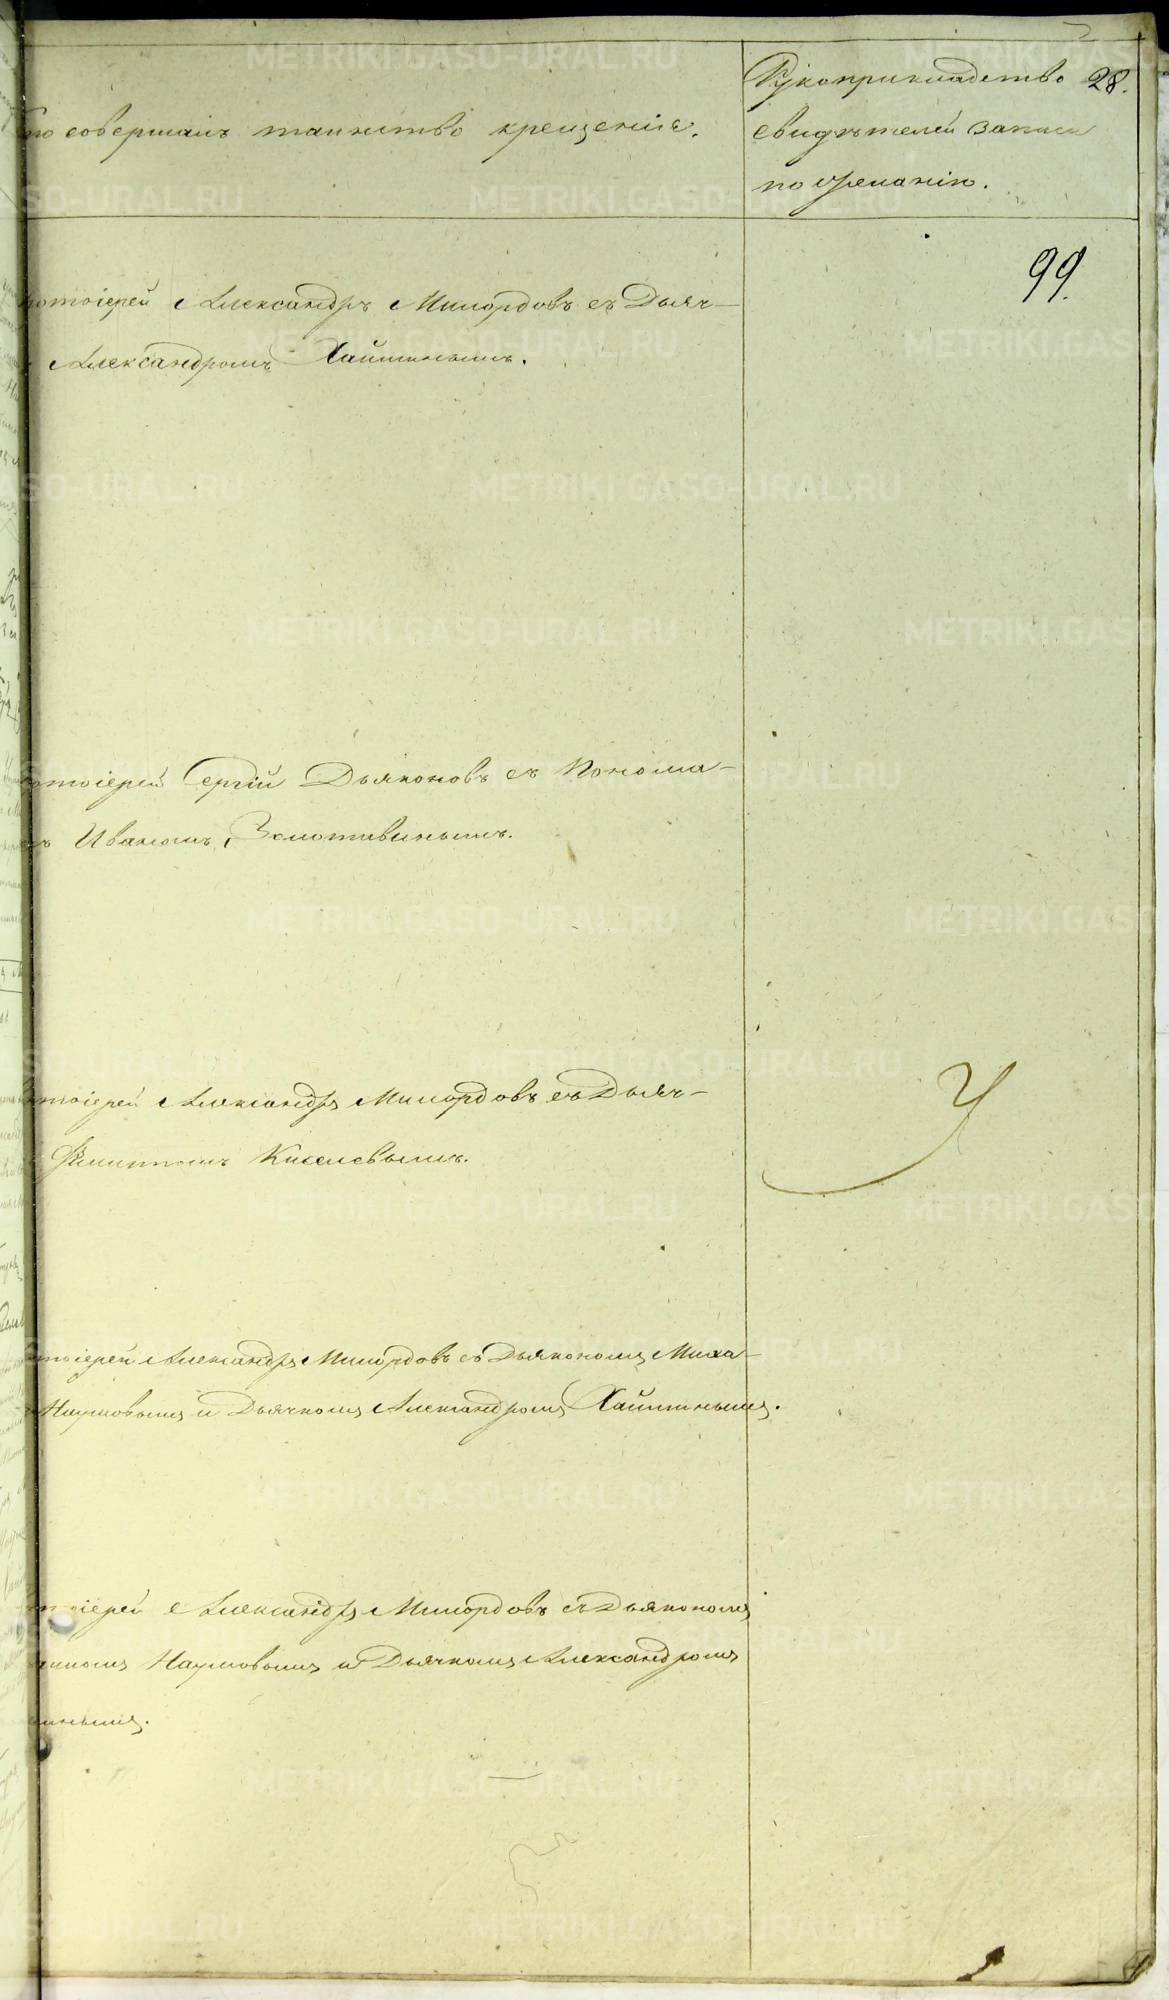 то совершалъ таинство крещенія.
Рукоприкладство 28.
свидѣтелей записи
по желанію.
99.
ротоіерей Александръ Милордовъ съ Дьяч-
Александромъ Хайминымъ.
отоіерей Сергій Дьяконовъ съ Понома-
ъ Иваномъ Золотавинымъ.
тоіерей Александръ Милордовъ съ Дьяч-
Филиппомъ Киселевымъ.
тоіерей Александръ Милордовъ съ Дьякономъ Миха-
Наумовымъ и Дьячкомъ Александромъ Хайминымъ.
іерей Александръ Милордовъ съ Дьякономъ
Наумовымъ и Дьячкомъ Александромъ
инымъ.
METRIKI.GASO-URAL.RU